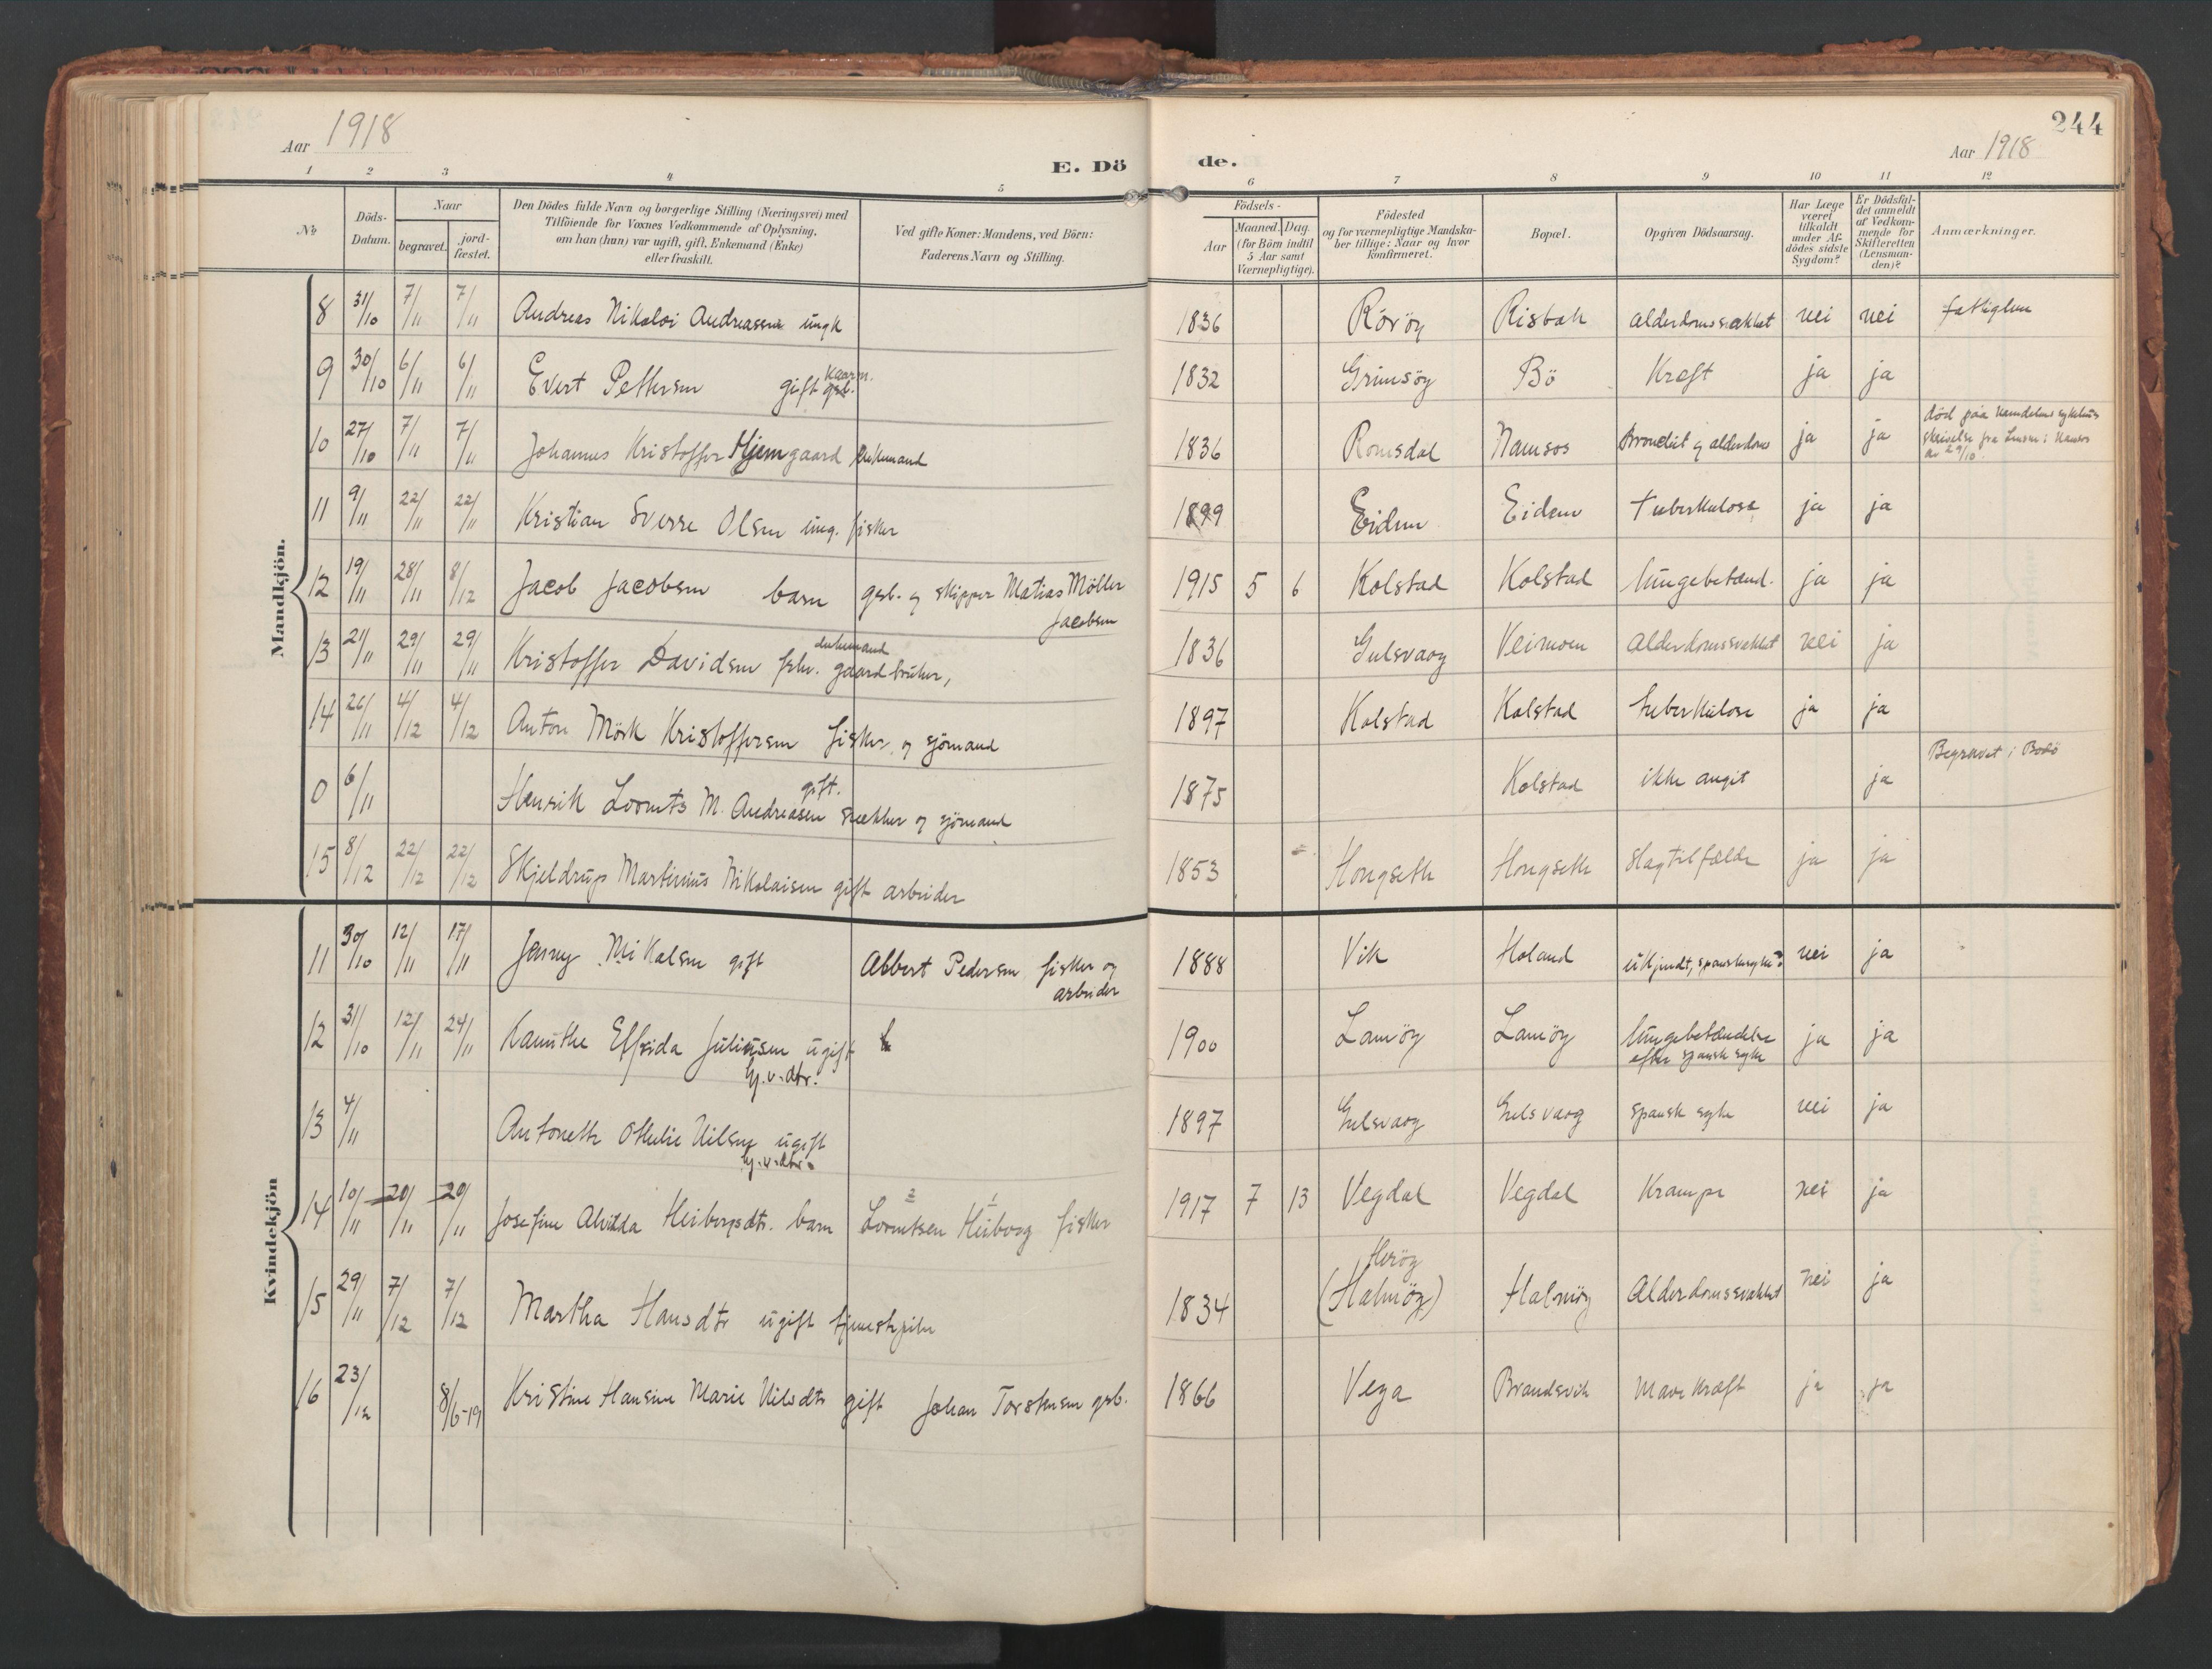 Aar 1918
E. Dö de.
244
Aar 1918
1 2 3 4 5 6 7 8 9 10 11 12
No
Döds-Datum.
Naar
begravet.
jord-fæstet.
Den Dödes fulde Navn og borgerlige Stilling (Næringsvei) med
Tilföiende for Voxnes Vedkommende af Oplysning,
om han (hun) var ugift, gift, Enkemand (Enke)
eller fraskilt.
Ved gifte Koner: Mandens, ved Börn:
Faderens Navn og Stilling.
Födsels-
Aar
Maaned. Dag.
(for Börn indtil
5 Aar samt
Værnepligtige).
Födested
og for værnepligtige Mandska-
ber tillige: Naar og hvor
konfirmeret.
Bopæl.
Opgiven Dödsaarsag.
Har Læge
været
tilkaldt
under Af-
dödes sidste
Sygdom?
Er Dödsfal-
det anmeldt
af Vedkom-
mende for
Skifteretten
(Lensman-
den)?
Anmærkninger.
Mandkjön.
8 31/10 7/11 7/11 Andreas Nikolai Andreassen ungk 1836 Röröy Risbak alderdomssvækket nei nei fattiglem
9 30/10 6/11 6/11 Evert Pettersen gift kaarm. gsb. 1832 Grimsöy Bö Kræft ja ja
10 27/10 7/11 7/11 Johannes Kristoffer Hjemgaard enkemand 1836 Romsdal Namsos Bronchit og alderdom ja ja
död paa Namdalens sykehus
skrivelse fra Lensm. i Namsos
av 29/10.
11 9/11 22/11 22/11 Kristian Sverre Olsen ung. fisker 1899 Eidem Eidem tuberkulose ja ja
12 19/11 28/11 8/12 Jacob Jacobsen barn gsb. og skipper Matias Möller
Jacobsen
1915 5 6 Kolstad Kolstad lungebetænd. ja ja
13 21/11 29/11 29/11 Kristoffer Davidsen enkemand fhv. gaardbruker, 1836 Gulsvaag Veimoen Alderdomssvækket nei ja
14 26/11 4/12 4/12 Anton Mörk Kristoffersen fisker og sjömand 1897 Kolstad Kolstad tuberkulose ja ja
0 6/11 Henrik Lorents M. Andreasen gift. snekker og sjömand 1875 Kolstad ikke angit ja Begravet i Bodö
15 8/12 22/12 22/12 Skjeldrup Martinus Nikolaisen gift arbeider 1853 Hongseth Hongseth slagtilfælde ja ja
Kvindekjön
11 30/10 12/11 17/11 Jenny Mikalsen gift Albert Pedersen fisker og
arbeider
1888 Vik Holand ukjendt, spanskesyke? nei ja
12 31/10 12/11 24/11 Kanutte Effrida Juliussen ugift
hj.v.dtr.
1900 Lamöy Lamöy lungebetændelse
efter spansk syke
ja ja
13 4/11 Antonette Othelie Nilsen ugift
hj.v.dtr.
1897 Gulsvaag Gulsvaag spansk syke nei ja
14 10/11 20/11 20/11 Josefine Alvilda Heibergsdtr. barn 2 Lorentsen 1 Heiberg fisker 1917 7 13 Vegdal Vegdal Krampe nei ja
15 29/11 7/12 7/12 Martha Hansdtr ugift tjenestepike 1834 Heröy
(Halmöy) Halmöy Alderdomssvækket nei ja
16 23/12 8/6-19 Kristine Hansine Marie Nilsdtr gift Johan Torstensen gsb. 1866 Vega Brandsvik Mavekræft ja ja